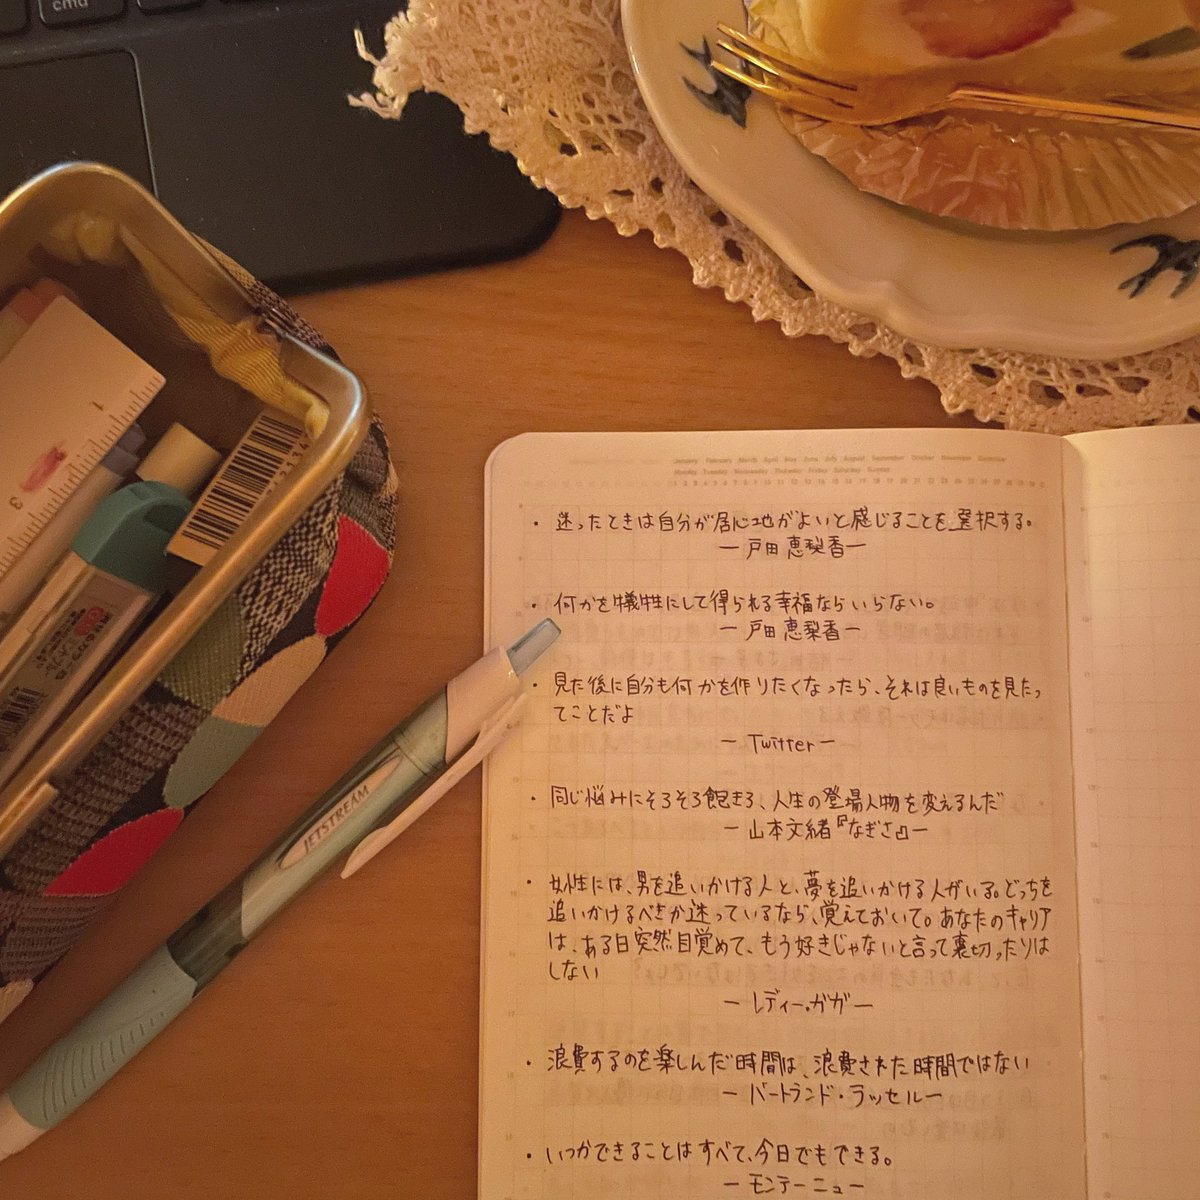 cmd
January February March April May June July August September October November December
Monday Tuesday Wednesday Thursday Friday Saturday Sunday
・迷ったときは自分が居心地がよいと感じることを選択する。
ー戸田恵梨香ー
・何かを犠牲にして得られる幸福ならいらない。
ー戸田恵梨香ー
・見た後に自分も何かを作りたくなったら、それは良いものを見たっ
てことだよ
ーTwitterー
・同じ悩みにそろそろ飽きろ、人生の登場人物を変えるんだ
ー山本文緒『なぎさ』ー
・女性には、男を追いかける人と、夢を追いかける人がいる。どっちを
追いかけるべきか迷っているなら、覚えておいて。あなたのキャリア
は、ある日突然目覚めて、もう好きじゃないと言って裏切ったりは
しない
ーレディー・ガガー
・浪費するのを楽しんだ時間は、浪費された時間ではない
ーバートランド・ラッセルー
・いつかできることはすべて、今日でもできる。
ーモンテーニュー
JETSTREAM
1
3